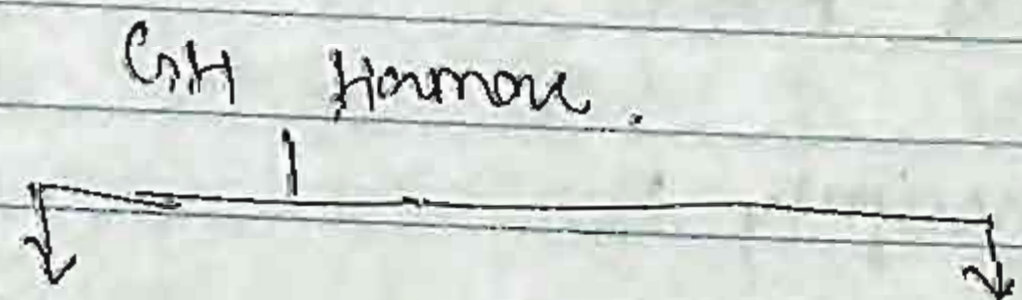 GH Hormone.